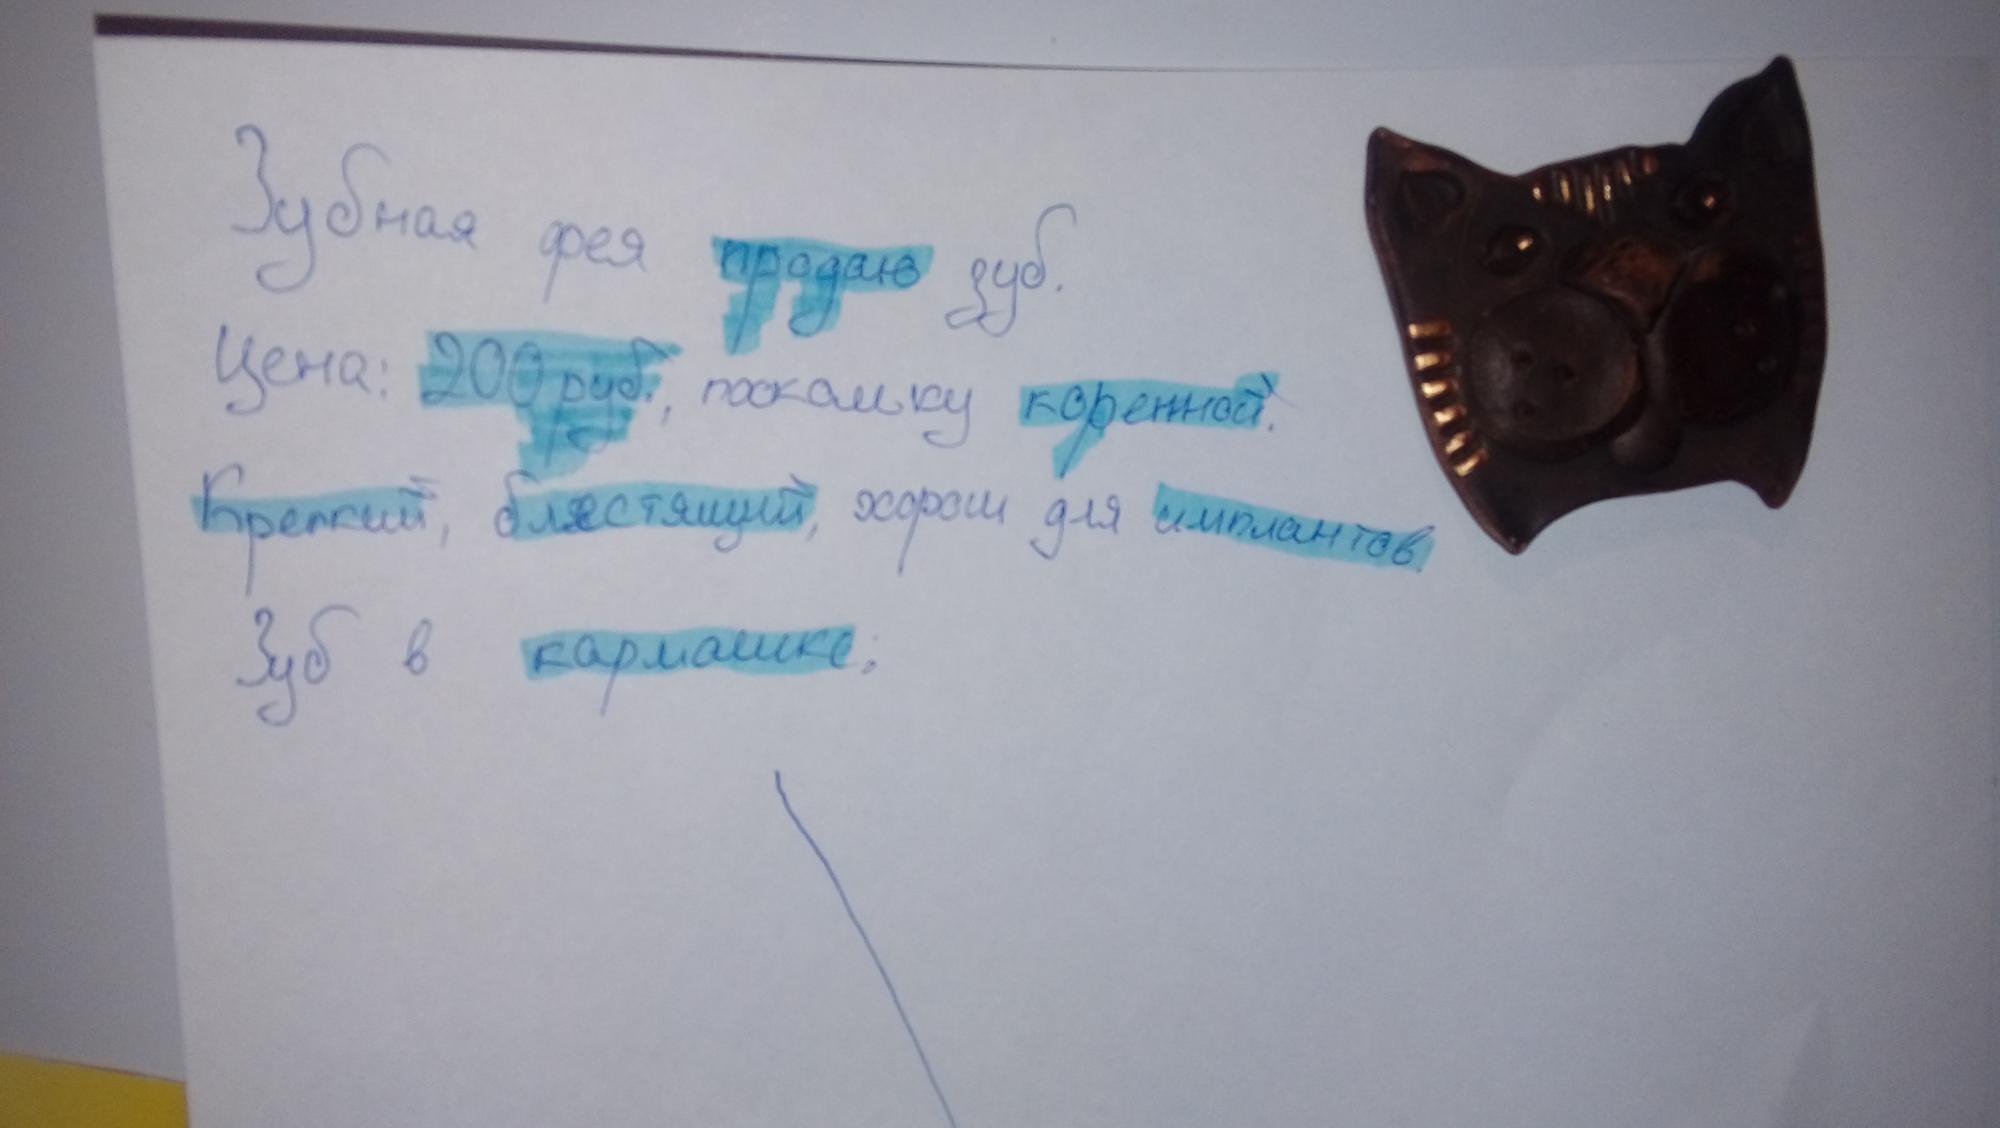 Зубная фея продаю зуб.
Цена: 200 руб., поскольку коренной.
Крепкий, блястящий, хорош для имплантов.
Зуб в кармашке;